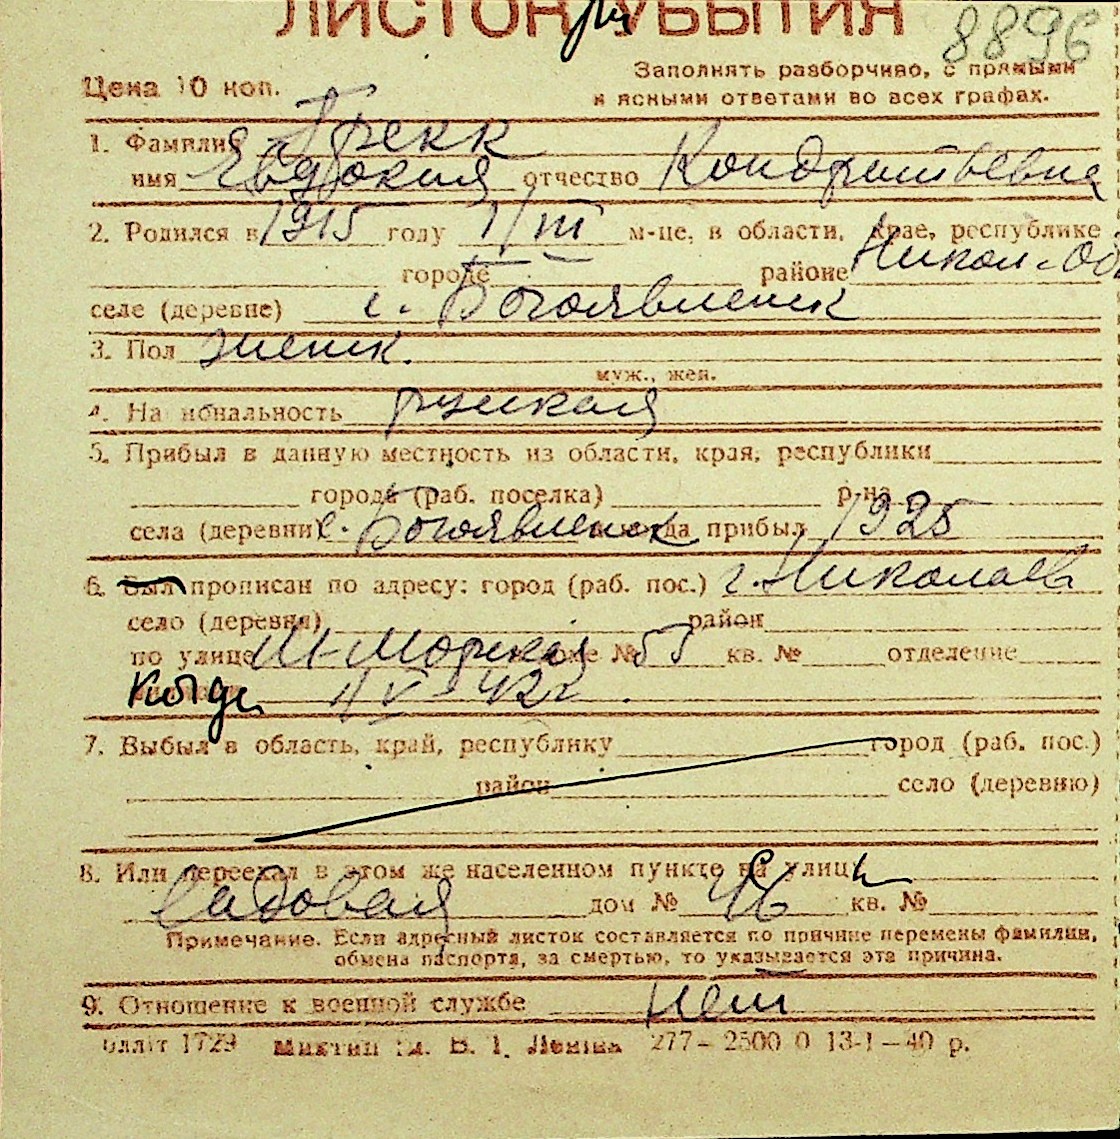 ЛИСТОК УБЫТИЯ
8896
Цена 10 коп.
Заполнять разборчиво, с прямыми
и ясными ответами во всех графах.
1. Фамилия Грекк
имя Евдокия отчество Кондратьевна
2. Родился в 1915 году 1/III м-це, в области, крае, республике
городе районе Никол-об
селе (деревне) с. Богоявленск
3. Пол женск.
муж., жен.
4. Национальность русская
5. Прибыл в данную местность из области, края, республики
города (раб. поселка) р-на
села (деревни) с. Богоявленск когда прибыл 1925
6. Был прописан по адресу: город (раб. пос.) г. Николаев
село (деревня) район
по улице III-Морская доме № 55 кв. № отделение
Когда 1/V-42г.
7. Выбыл в область, край, республику город (раб. пос.)
район село (деревню)
8. Или переехал в этом же населенном пункте с улицы
Садовая дом № 46 кв. №
Примечание. Если адресный листок составляется по причине перемены фамилии,
обмена паспорта, за смертью, то указывается эта причина.
9. Отношение к военной службе нет
1729 им. В. І. Леніна 277–2500 0 13-I–40 р.